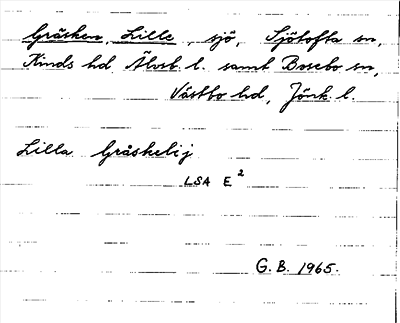 Gräsken, Lille, sjö, Sjötofta sn,
Kinds hd Älvsb. l. samt Bosebo sn,
Västbo hd, Jönk. l.
Lilla Gråskelij
LSA E²
G. B. 1965.